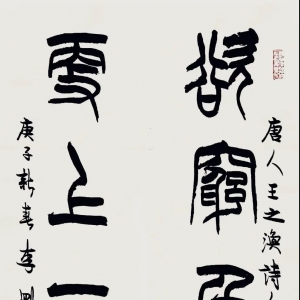 唐人王之渙詩
欲窮千
更上一
庚子新春李